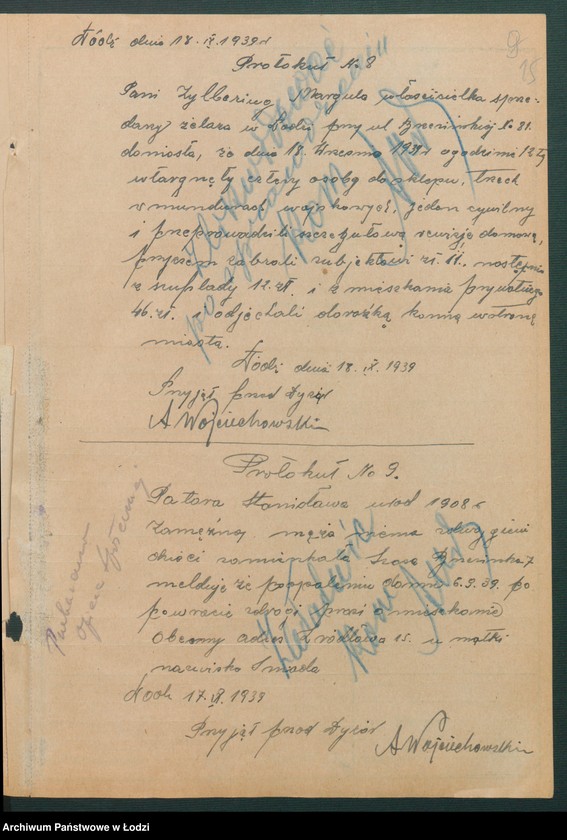 Łódź dnia 18. IX. 1939 r
15
Protokuł No 8
Pani Zylbering Margula właścicielka sprze-
daży żelaza w Łodzi przy ul Brzezińskiej No 81.
doniosła, że dnia 18. Wrzesnia 1939 r o godzinie
wtargnęły cztery osoby do sklepu, trzech
w mundurach wojskowych, jeden cywilny
i przeprowadzili szczegułową rewizję domową,
przyczem zabrali subjektowi zł. 11. następnie
z szuplady 12. zł. i z mieszkania prywatnego
46. zł. odjechali dorożką konną w stronę
miasta.
Łódź dnia 18. IX. 1939
Przyjął przod dyżór
A Wojciechowski
Protokuł No 9.
Patora Stanisława urod 1908 r
zamężna, męża niema
dzieci zamieszkała Brzezińska 7
melduje że po spaleniu domu 6.9.39. po
powrocie z drogi prosi o mieszkanie
Obecny adres Źródłowa 15. u matki
nazwisko Smada
Łódź 17. IX. 1939
Przyjął przod dyżór
A Wojciechowski
Opieka Społeczna
Archiwum Państwowe w Łodzi